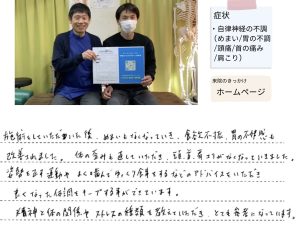 症状
・自律神経の不調
(めまい/胃の不調
/頭痛/首の痛み
/肩こり)
来院のきっかけ
ホームページ
施術をしていただいた後、めまいもなくなっていき、食欲不振、胃の不快感も
改善されました。体の歪みも直していただき、頭、首、肩コリがなくなっていきました。
姿勢を正す運動や、よく噛んでゆっくり食事をするなどのアドバイスをいただき
良くなった体調をキープする事ができています。
精神と体の関係やストレスの種類も教えていただき、とても参考になっています。